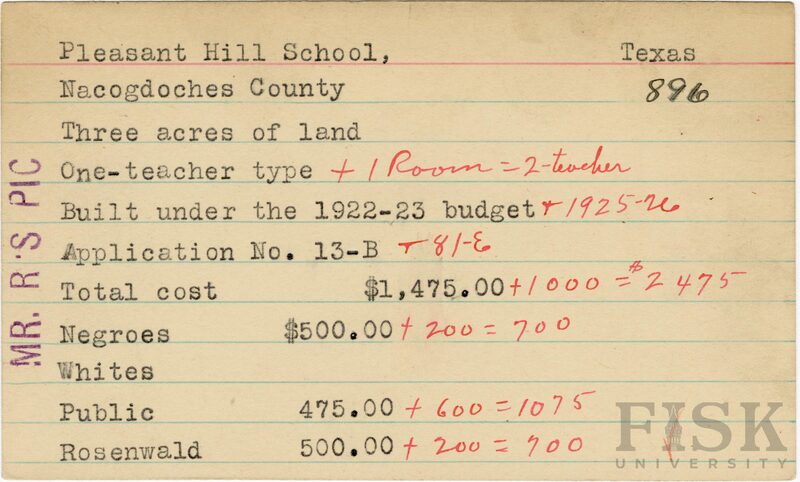 Pleasant Hill School, Texas
Nacogdoches County 896
Three acres of land
One-teacher type + 1 Room = 2-teacher
Built under the 1922-23 budget + 1925-26
Application No. 13-B + 81-E
Total cost $1,475.00 + 1000 = $2475
Negroes $500.00 + 200 = 700
Whites
Public 475.00 + 600 = 1075
Rosenwald 500.00 + 200 = 700
MR. R'S PIC
FISK
UNIVERSITY